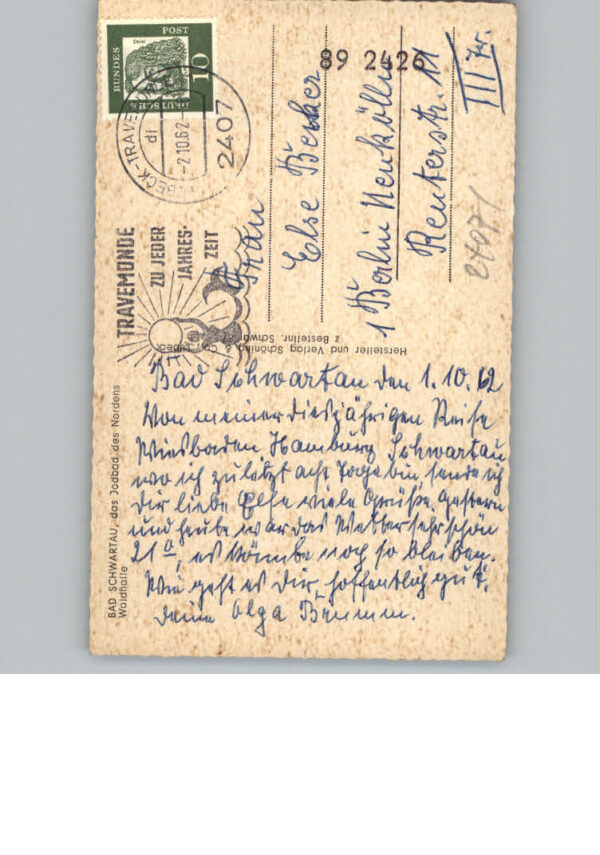 Bad Schwartau den 1.10.62
Von meiner diesjährigen Reise
Wiesbaden, Hamburg Schwartau
wo ich zuletzt acht Tage bin, sende ich
Dir liebe Else viele Grüße. Gestern
und heute war das Wetter sehr schön
21°, es könnte noch so bleiben.
Wie geht es Dir, hoffentlich gut.
Deine Olga Brumm.
Frau
Else Becker
1 Berlin Neukölln
Reuterstr. 11
III Tr.
24071
89 2426
DEUTSCHE
BUNDES
POST
10
Dürer
di
-2.10.62
2407
TRAVEMÜNDE
ZU JEDER
JAHRES-
ZEIT
Hersteller und Verlag Schöning & Co., Lübeck
z Bestellnr. Schwa
BAD SCHWARTAU, das Jodbad des Nordens
Waldhalle